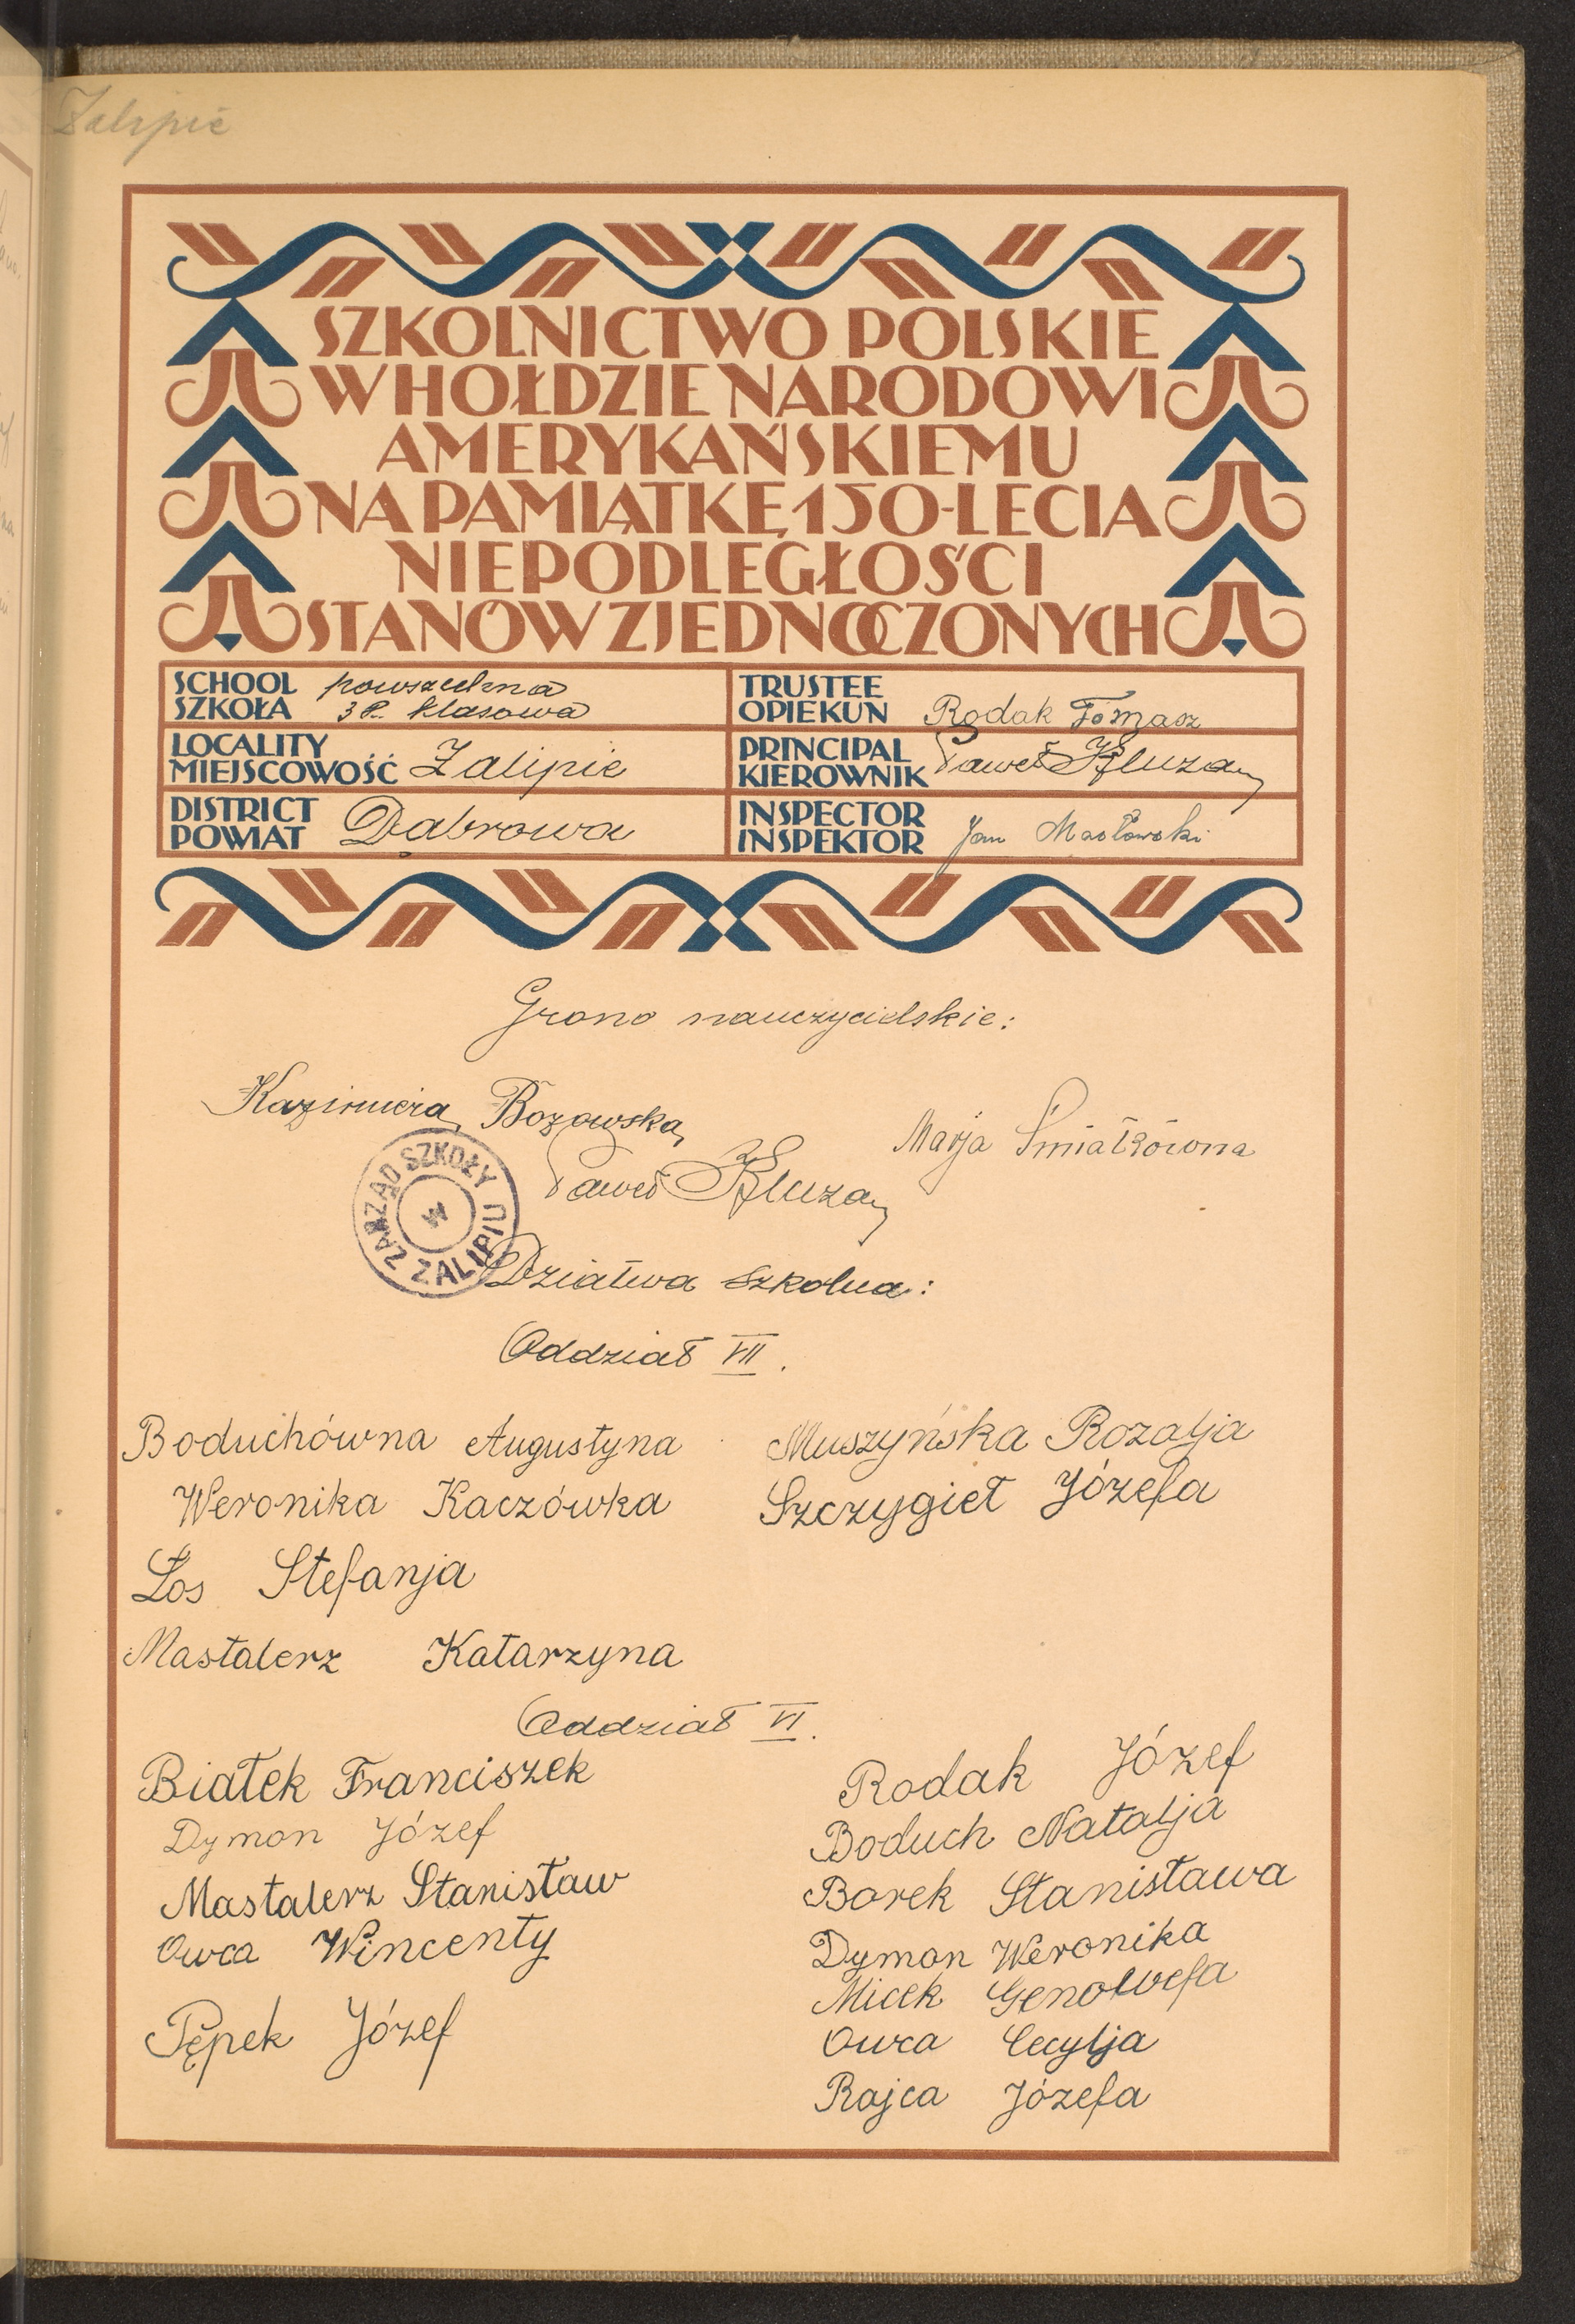 Zalipie
SZKOLNICTWO POLSKIE
W HOŁDZIE NARODOWI
AMERYKAŃSKIEMU
NA PAMIĄTKĘ 150-LECIA
NIEPODLEGŁOŚCI
STANÓW ZJEDNOCZONYCH
SCHOOL
SZKOŁA
powszechna
3 kl. klasowa
TRUSTEE
OPIEKUN
Rodak Tomasz
LOCALITY
MIEJSCOWOŚĆ
Zalipie
PRINCIPAL
KIEROWNIK
Paweł Kluza
DISTRICT
POWIAT
Dąbrowa
INSPECTOR
INSPEKTOR
Jan Masłowski
Grono nauczycielskie:
Kazimiera Bozowska
Marja Śmiałkówna
Paweł Kluza
ZARZĄD SZKOŁY
W
ZALIPIU
Dziatwa szkolna:
Oddział VII.
Boduchówna Augustyna
Muszyńska Rozalja
Weronika Kaczówka
Szczygieł Józefa
Łos Stefanja
Mastalerz Katarzyna
Oddział VI.
Białek Franciszek
Rodak Józef
Dymon Józef
Boduch Natalja
Mastalerz Stanisław
Borek Stanisława
Owca Wincenty
Dymon Weronika
Micek Genowefa
Pępek Józef
Owca Cecylja
Rajca Józefa